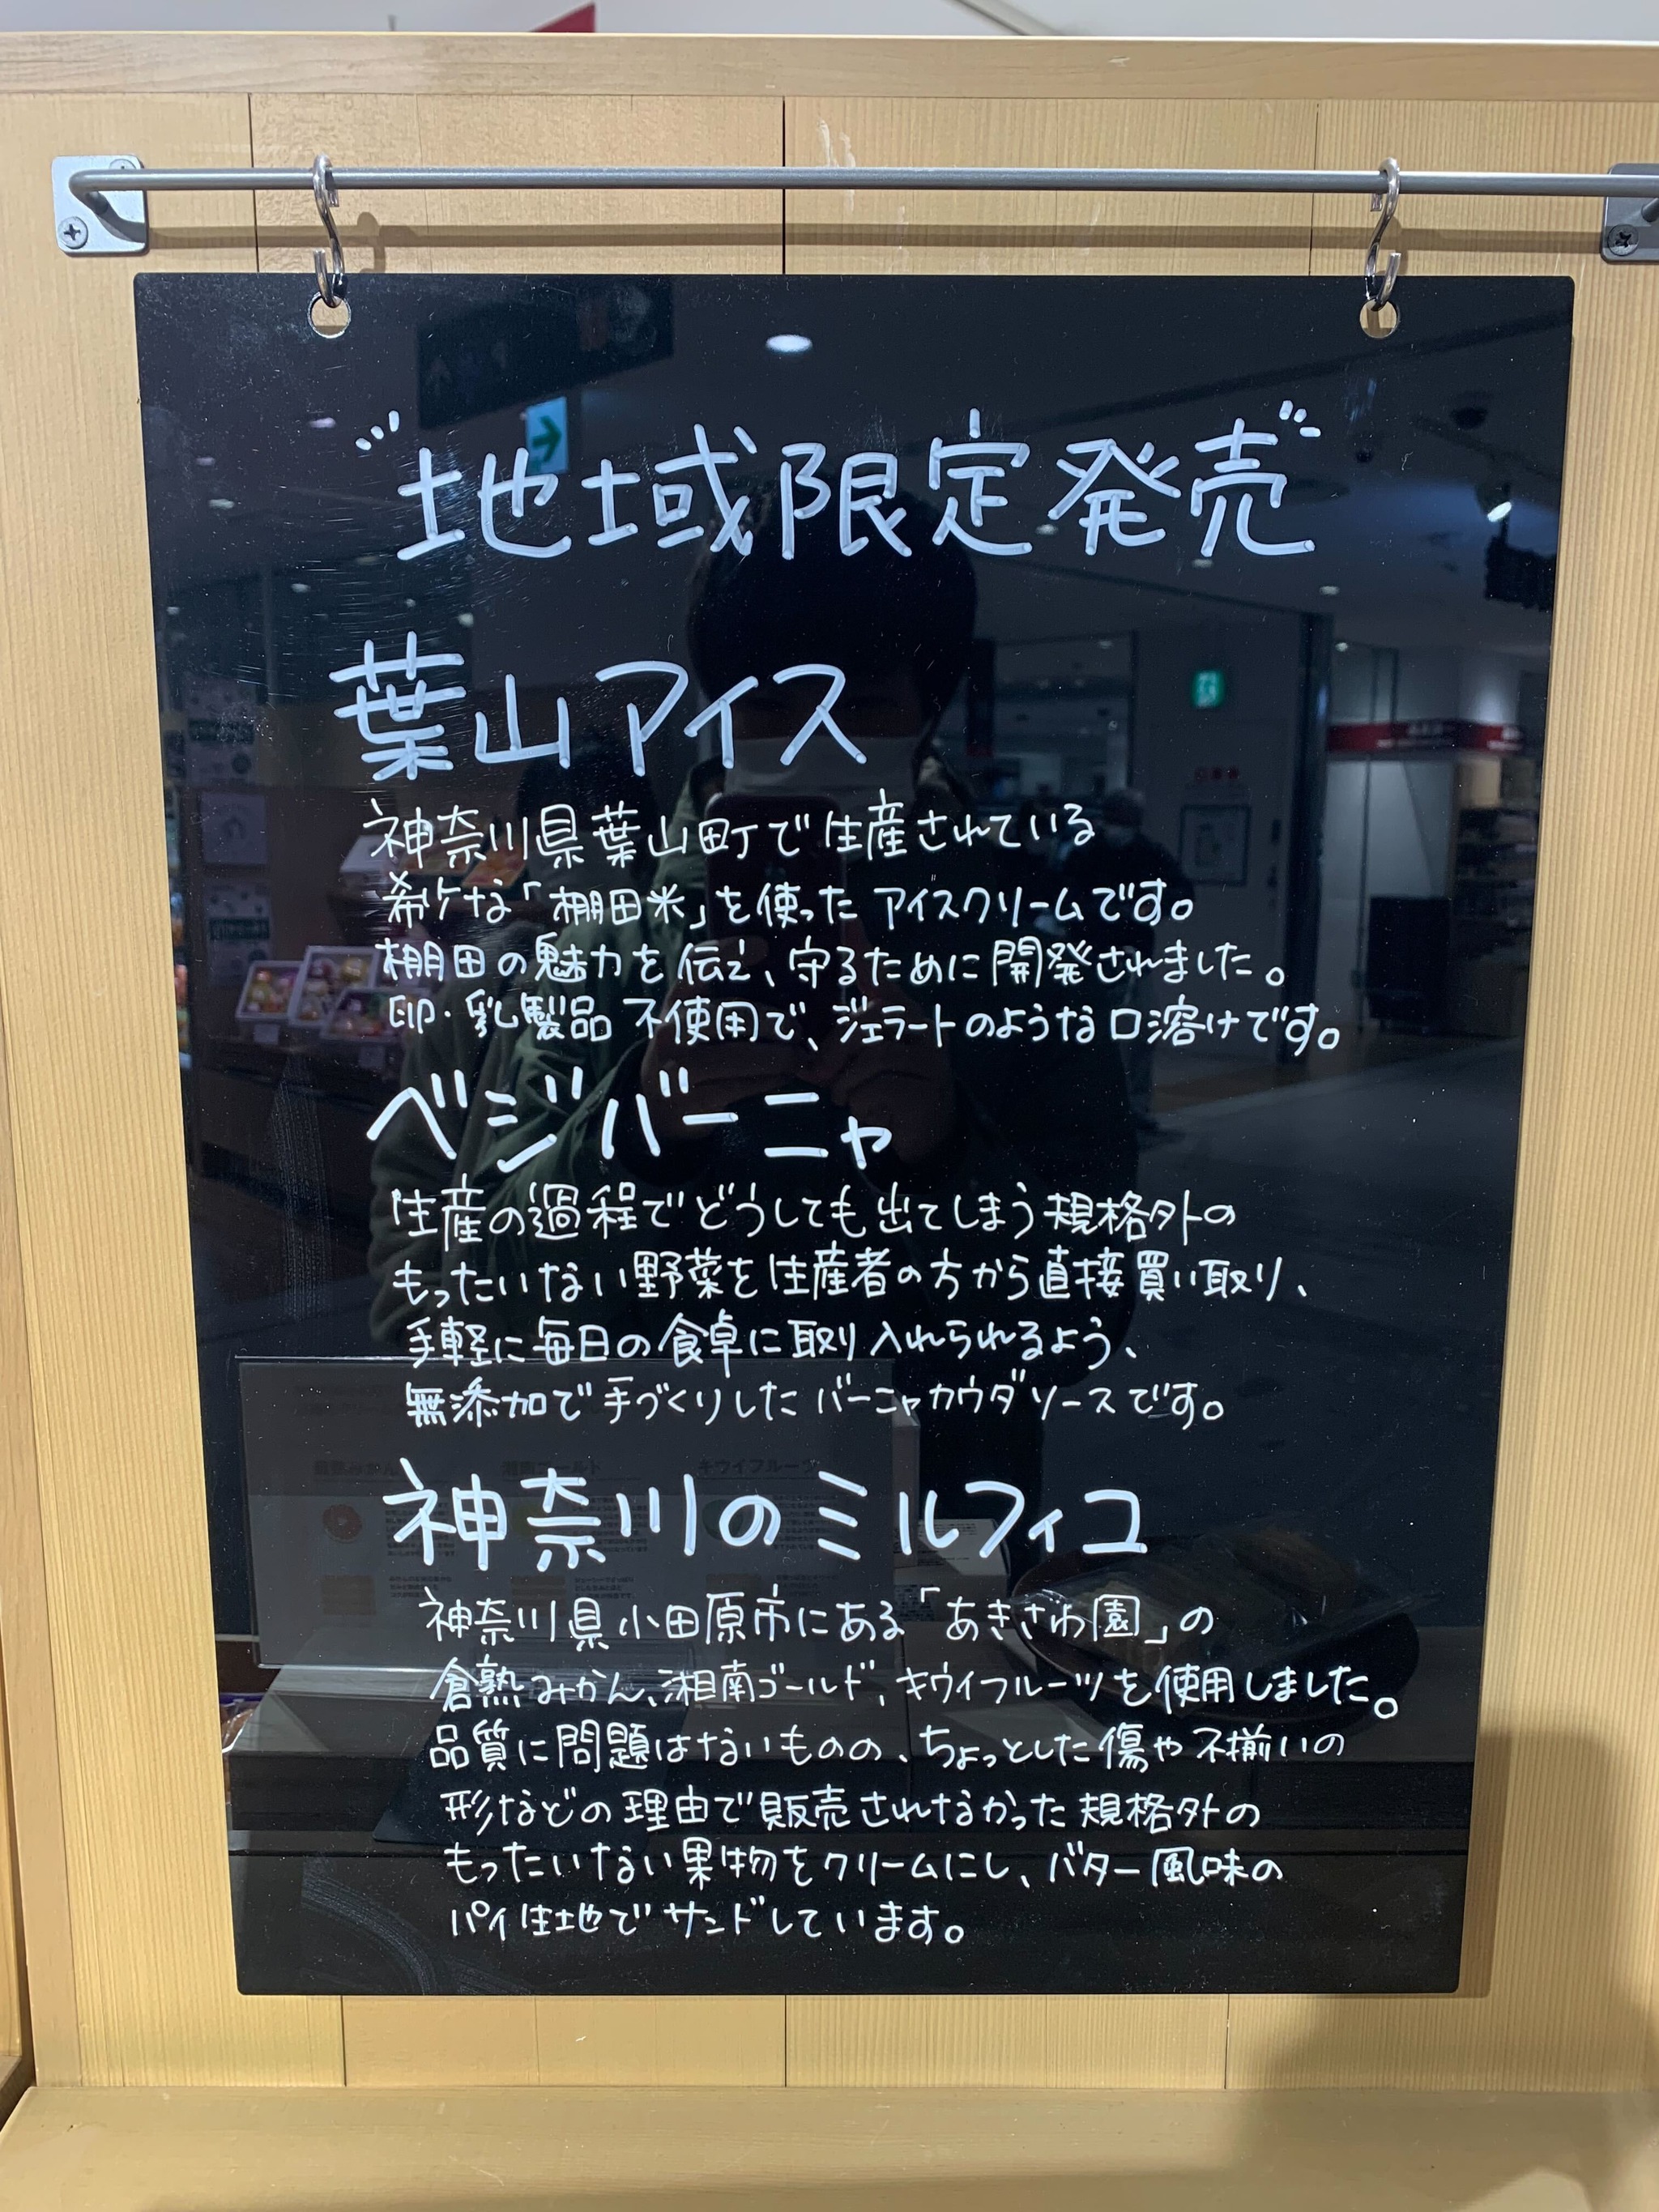 地域限定発売
葉山アイス
神奈川県葉山町で生産されている
希少な「棚田米」を使ったアイスクリームです。
棚田の魅力を伝え、守るために開発されました。
卵・乳製品不使用で、ジェラートのような口溶けです。
ベジバーニャ
生産の過程でどうしても出てしまう規格外の
もったいない野菜を生産者の方から直接買い取り、
手軽に毎日の食卓に取り入れられるよう、
無添加で手づくりしたバーニャカウダソースです。
神奈川のミルフィユ
神奈川県小田原市にある「あきさわ園」の
倉熟みかん、湘南ゴールド、キウイフルーツを使用しました。
品質に問題はないものの、ちょっとした傷や不揃いの
形などの理由で販売されなかった規格外の
もったいない果物をクリームにし、バター風味の
パイ生地でサンドしています。